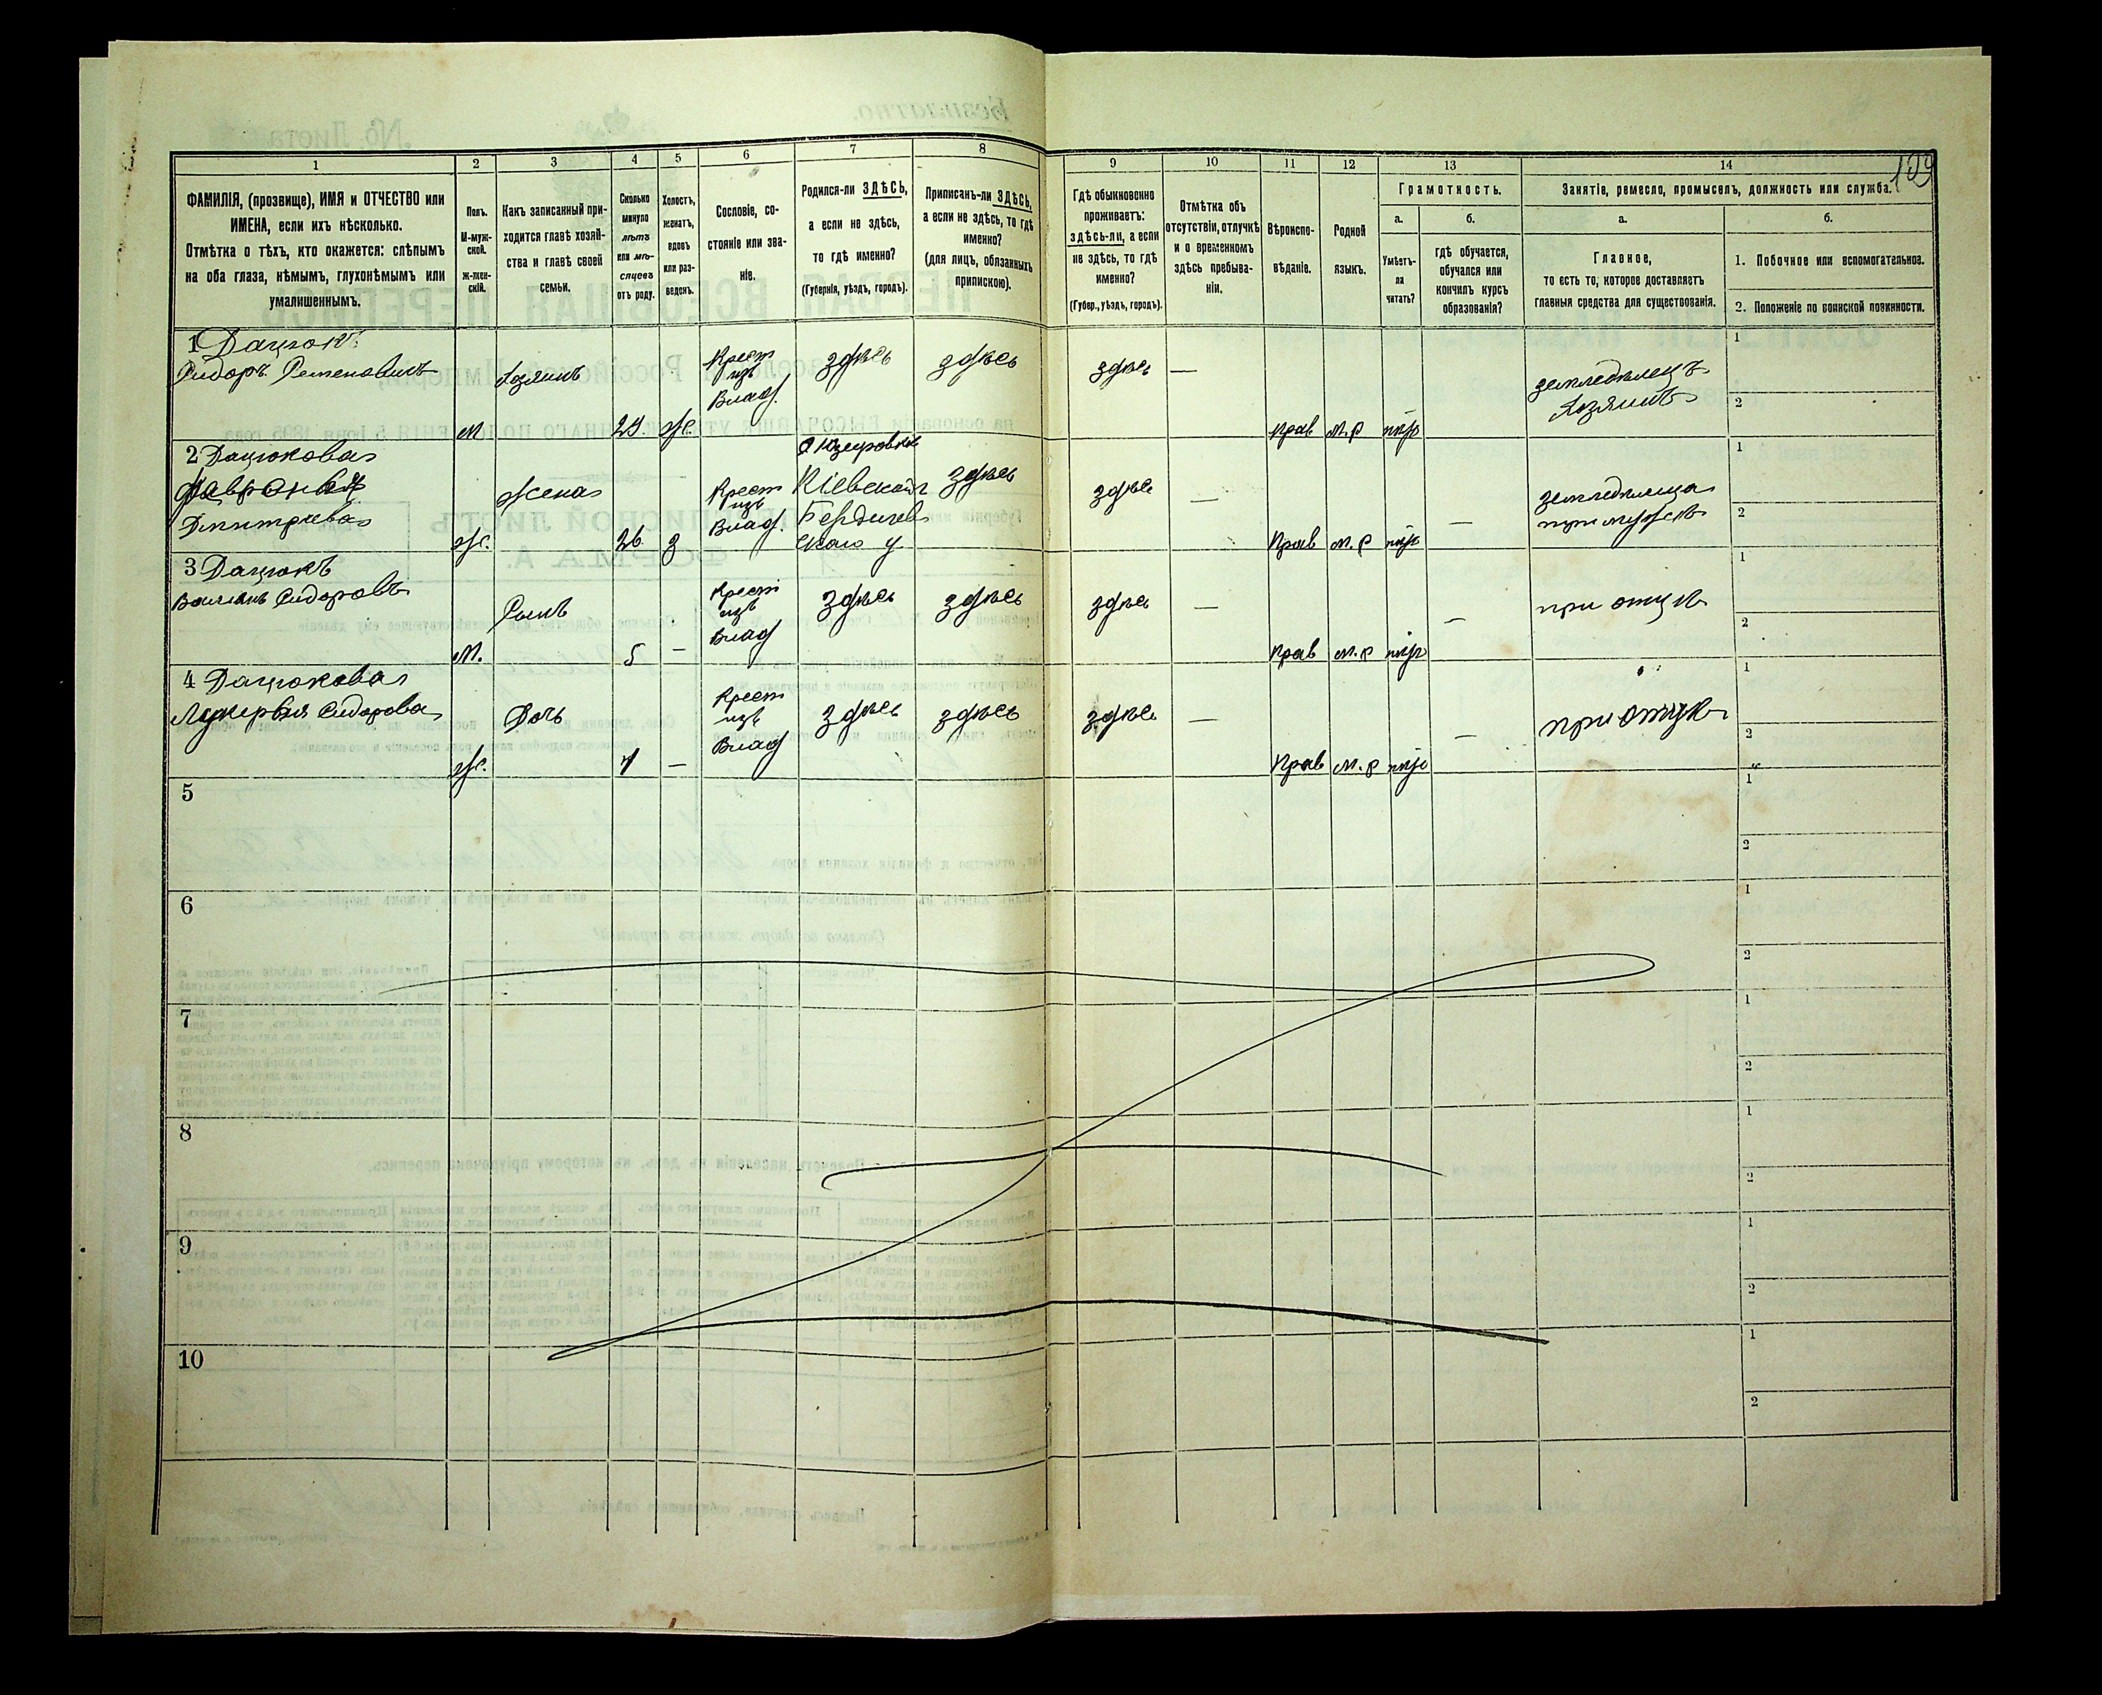 1 2 3 4 5 6 7 8 9 10 11 12 13 14
ФАМИЛІЯ, (прозвище), ИМЯ и ОТЧЕСТВО или
ИМЕНА, если ихъ нѣсколько.
Отмѣтка о тѣхъ, кто окажется: слѣпымъ
на оба глаза, нѣмымъ, глухонѣмымъ или
умалишеннымъ.
Полъ.
М-муж-
ской.
ж-жен-
скій.
Какъ записанный при-
ходится главѣ хозяй-
ства и главѣ своей
семьи.
Сколько
минуло
лѣтъ
или мѣ-
сяцевъ
отъ роду.
Холостъ,
женатъ,
вдовъ
или раз-
веденъ.
Сословіе, со-
стояніе или зва-
ніе.
Родился-ли ЗДѢСЬ,
а если не здѣсь,
то гдѣ именно?
(Губернія, уѣздъ, городъ).
Приписанъ-ли ЗДѢСЬ,
а если не здѣсь, то гдѣ
именно?
(для лицъ, обязанныхъ
припискою).
Гдѣ обыкновенно
проживаетъ:
здѣсь-ли, а если
не здѣсь, то гдѣ
именно?
(Губер., уѣздъ, городъ).
Отмѣтка объ
отсутствіи, отлучкѣ
и о временномъ
здѣсь пребыва-
ніи.
Вѣроиспо-
вѣданіе.
Родной
языкъ.
Грамотность.
а.
Умѣетъ-
ли
читать?
б.
гдѣ обучается,
обучался или
кончилъ курсъ
образованія?
Занятіе, ремесло, промыселъ, должность или служба.
а.
Главное,
то есть то, которое доставляетъ
главныя средства для существованія.
б.
1. Побочное или вспомогательное.
2. Положеніе по воинской повинности.
1 Дацюкъ
Сидоръ Семеновичъ
м
Хозяинъ
29.
ж.
Крест
изъ
Влад.
здѣсь
здѣсь
здѣсь
—
Прав
м.р
нѣт
земледѣлецъ
Хозяинъ
1
2
2 Дацюкова
Дмитріева
ж.
Жена
26
з
Крест
изъ
Влад.
Кіевской г
Бердичев
скаго у
здѣсь
здѣсь
—
Прав
м.р
нѣт
—
земледѣлица
при мужѣ
1
2
3 Дацюкъ
Сидоровъ
м.
Сынъ
5
—
Крест
изъ
Влад
здѣсь
здѣсь
здѣсь
—
Прав
м.р
нѣт
—
при отцѣ
1
2
4 Дацюкова
Лукерья Сидорова
ж.
Дочь
1
—
Крест
изъ
Влад
здѣсь
здѣсь
здѣсь
—
Прав
м.р
нѣт
—
при отцѣ
1
2
5
1
2
6
1
2
7
1
2
8
1
2
9
1
2
10
1
2